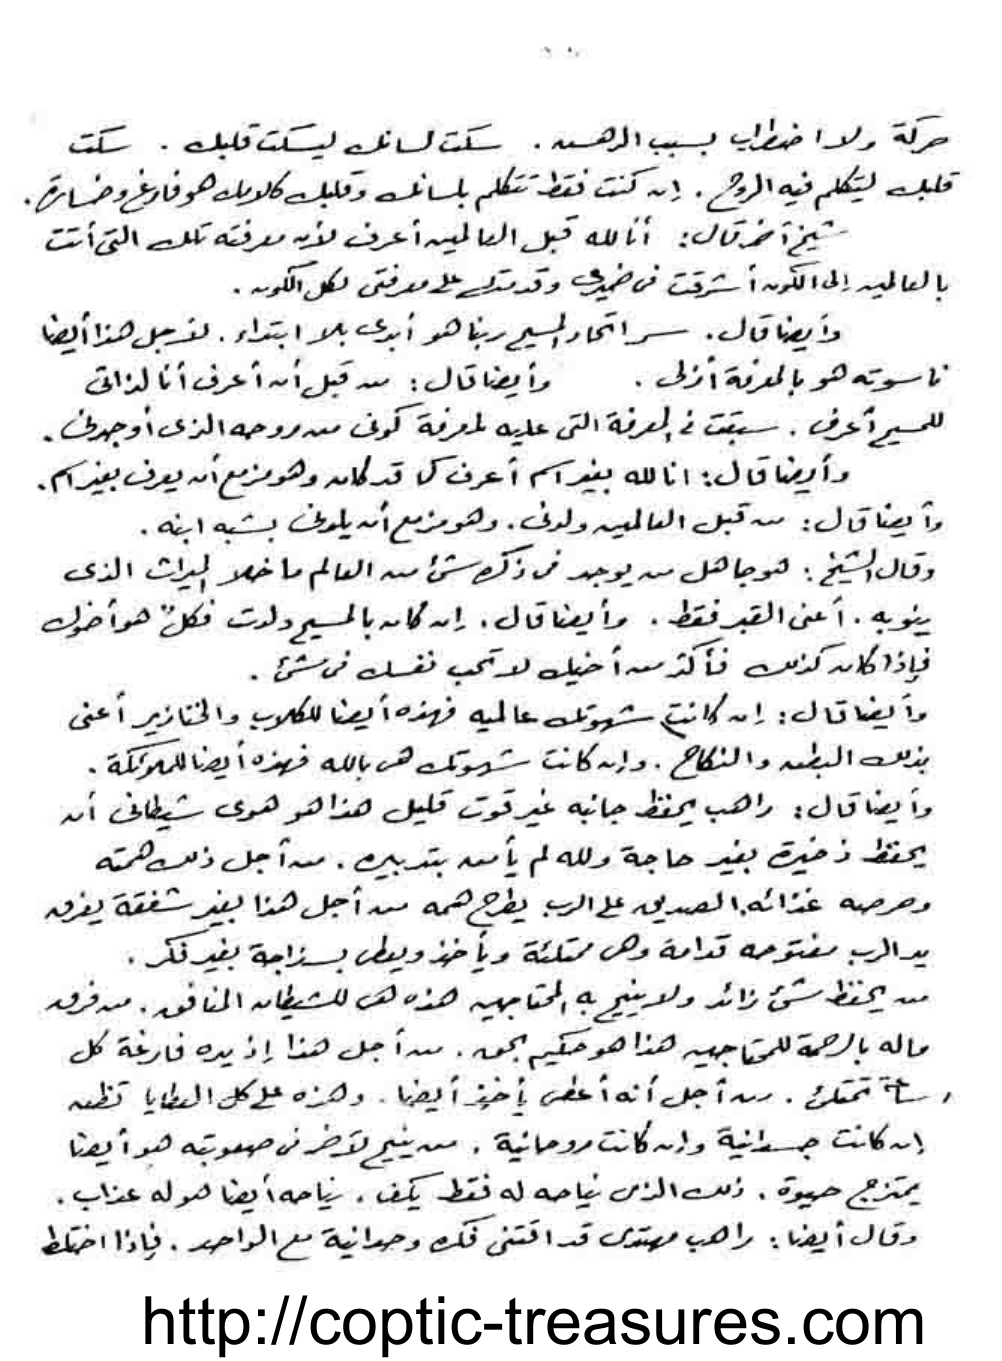 حركة ولا اضطراب بسبب الدهش . سكت لسانك ليسكت قلبك . سكت
قلبك ليتكلم فيه الروح . إن كنت فقط تتكلم بلسانك وقلبك كلامك هو فارغ وخسارة .
شيخ آخر قال : أنا لله قبل العالمين أعرف لأن معرفته تلك التى أتت
بالعالمين إلى الكون أشرقت فى ضميرى وقدمتنى على معرفتى لكل الكون .
وأيضا قال . سر اتحاد المسيح ربنا هو أبدى بلا ابتداء . لأجل هذا أيضا
ناسوته هو بالمعرفة أزلى . وأيضا قال : من قبل أن أعرف أنا لذاتى
للمسيح أعرف . سبقت فى المعرفة التى عليه لمعرفة كونى من روحه الذى أوجدنى .
وأيضا قال : انا لله بغير اسم أعرف كما قد كان وهو مزمع أن يعرف بغير اسم .
وأيضا قال : من قبل العالمين ولدنى . وهو مزمع أن يلدنى بشبه ابنه .
وقال الشيخ : هو جاهل من يوجد فى ذكره شئ من العالم ما خلا الميراث الذى
ينوبه . أعنى القبر فقط . وأيضا قال . إن كان بالمسيح ولدت فكلٌ هو أخوك
فإذا كان كذلك فأكثر من أخيك لا تحب نفسك فى شئ .
وأيضا قال : إن كانت شهوتك عالميه فهذه أيضا للكلاب والخنازير أعنى
بذلك البطن والنكاح . وإن كانت شهوتك هى بالله فهذه أيضا للملائكة .
وأيضا قال : راهب يحفظ جانبه غير قوت قليل هذا هو هوى شيطانى أن
يحفظ ذخيرة بغير حاجة ولله لم يأمن بتدبيره . من أجل ذلك همته
وحرصه غذائه . الصديق على الرب يطرح همه من أجل هذا بغير شفقة يفرق
يد الرب مفتوحه قدامه وهى ممتلئة ويأخذ ويعطى بسذاجة بغير فكر .
من يحفظ شئ زائد ولا ينيح به المحتاجين هذه هى للشيطان المنافق . من فرق
ماله بالرحمة للمحتاجين هذا هو حكيم بحق . من أجل هذا إذ يده فارغة كل
ساعة تمتلئ . من أجل أنه أعطى يأخذ أيضا . وهذه على كل العطايا تظن
إن كانت جسدانية وإن كانت روحانية . من ينيح لآخر فى صعوبته هو أيضا
يمتزج حيوة . ذلك الذى نياحه له فقط يكف . نياحه أيضا هو له عذاب .
وقال أيضا : راهب مهتدى قد اقتنى فكره وحدانية مع الواحد . فإذا اختلط
http://coptic-treasures.com